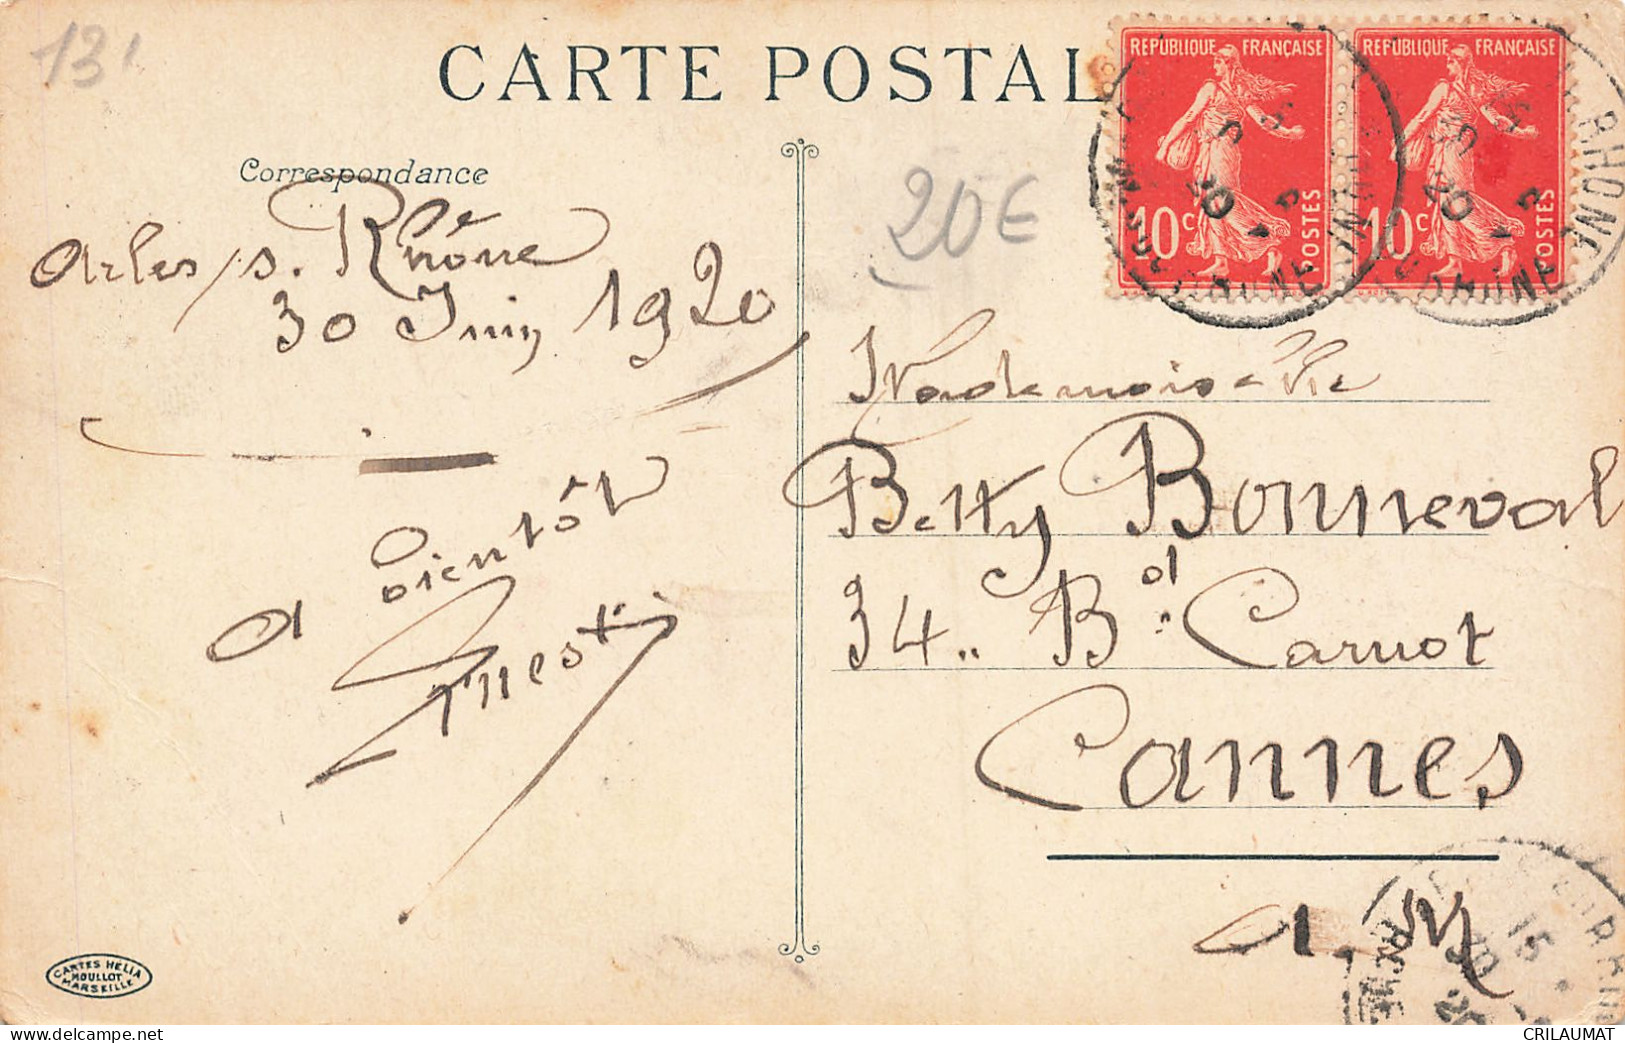 131
CARTE POSTAL
Correspondance
Arles s. Rhône
30 Juin 1920
a bientôt
Ernest
REPUBLIQUE FRANÇAISE
10 c
POSTES
REPUBLIQUE FRANÇAISE
10 c
POSTES
RHONE
20€
Mademoiselle
Betty Bonneval
34.. Bd. Carnot
Cannes
a. M
CARTES HELIA
MOULLOT
MARSEILLE
delcampe.net
CRILAUMAT